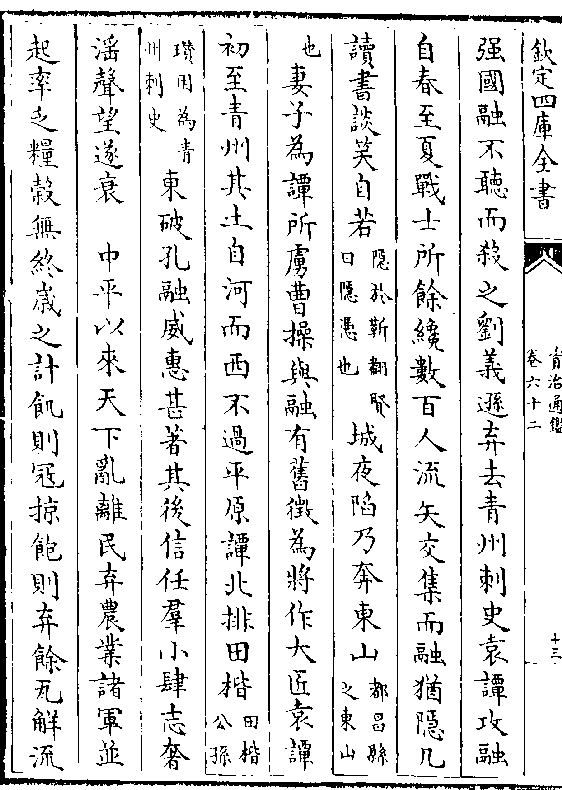 欽定四庫全書
資治通鑑
卷六十二
十三
强國融不聽而殺之劉義遜弃去青州刺史袁譚攻融
自春至夏戰士所餘纔數百人流矢交集而融猶隱几
讀書談笑自若
隱於靳翻賢
曰隱憑也
城夜陷乃奔東山
都昌縣
之東山
也
妻子為譚所虜曹操與融有舊徵為將作大匠袁譚
初至青州其土自河而西不過平原譚北排田楷
田楷
公孫
瓚用為青
州刺史
東破孔融威惠甚著其後信任羣小肆志奢
淫聲望遂衰 中平以來天下亂離民弃農業諸軍並
起率乏糧穀無終歲之計飢則寇掠飽則弃餘瓦解流